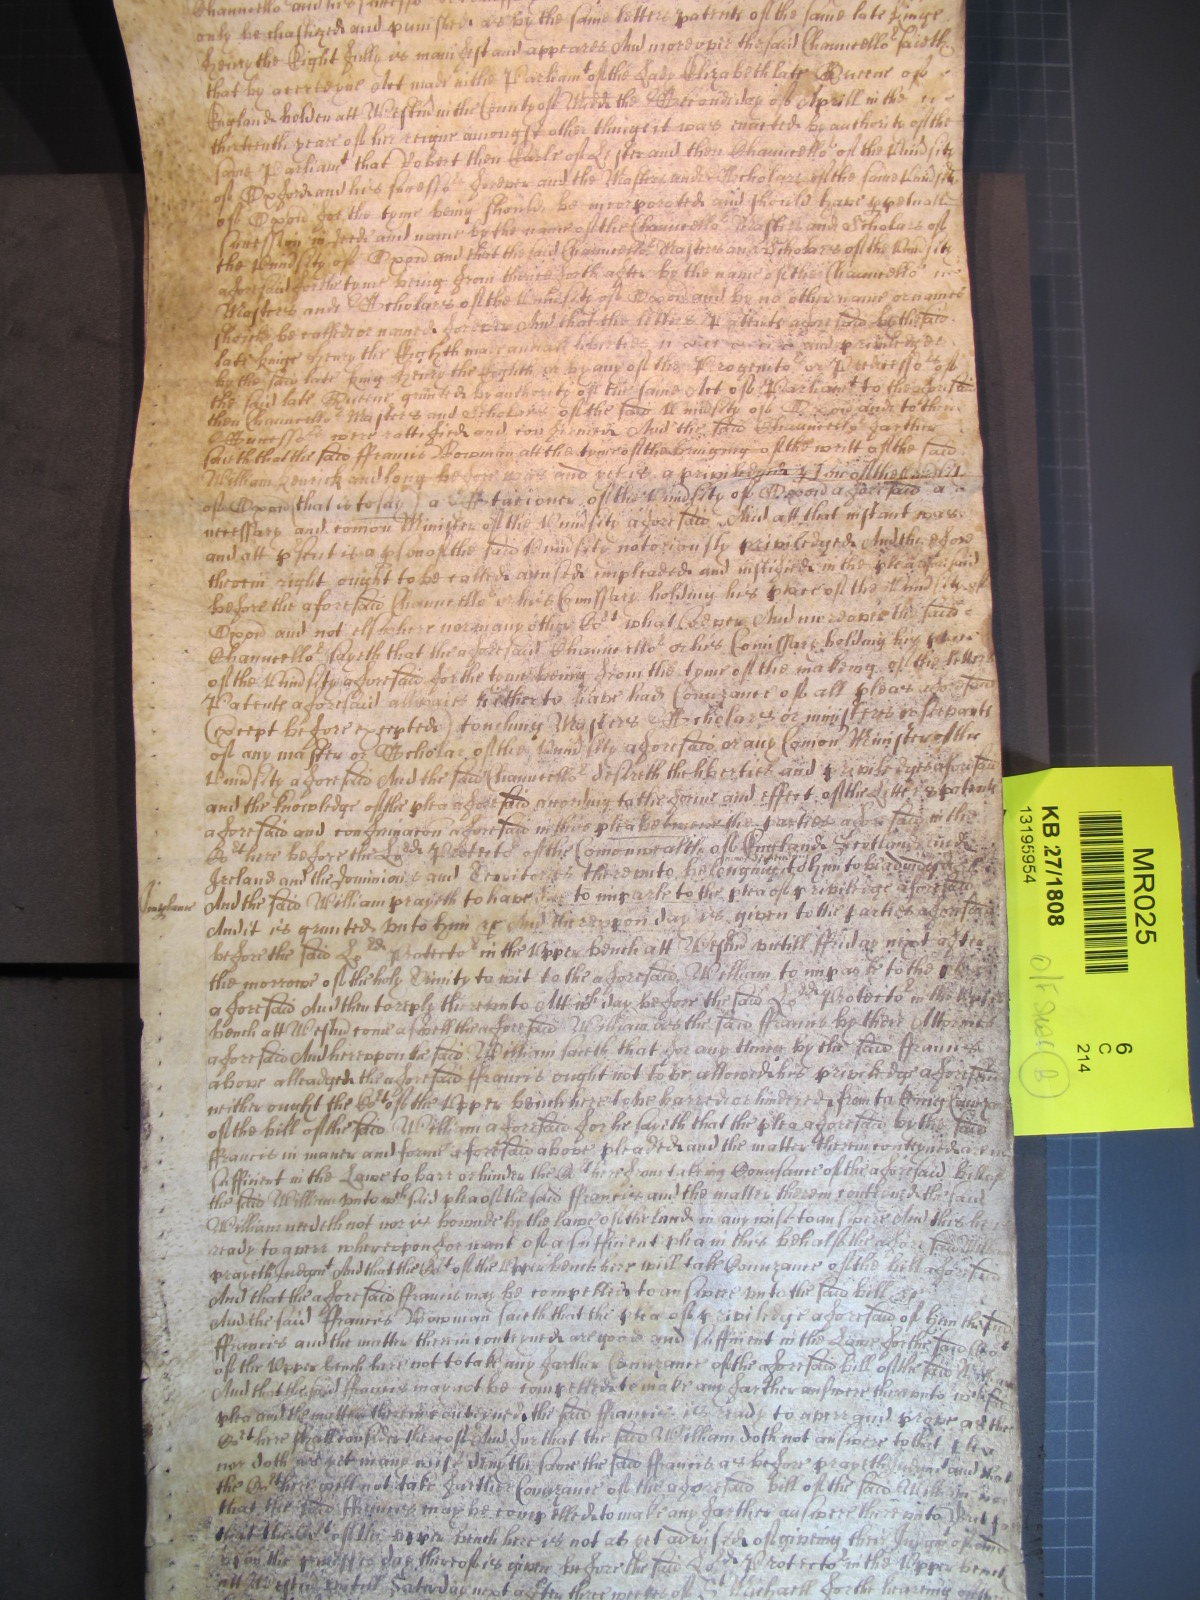 Chauncello^r and his Successo^rs
only be chastized and punished as by the same letters patents of the same late Kinge
Henry the Eight fully is manifest and appeares And moreover the said Chauncello^r saieth
that by a certeyne Act made in the Parliam^t of the Lady Elizabeth late Queene of
England holden att Westm in the County of Midd the Second day of Aprill in the
thirteenth yeare of her reigne amongst other things it was enacted by authority of the
same Parliam^t that Robert then Earle of Lester and then Chauncello^r of the Univ~sity
of Oxford and his Successo^rs forever and the Masters and Schollars of the same Univ~sity
of Oxon for the tyme being should be incorporated and should have ppetuall
Succession in deede and name by the name of the Chauncello^r Masters and Schollars of
the Univ~sity of Oxon and that the said Chauncello^r Masters and Schollars of the Univ~sity
aforesaid for the tyme being from thence forth after by the name of the Chauncello^r
Masters and Schollars of the Univ~sity of Oxon and by no other name or names
should be called or named forever And that the letters Patents aforesaid by the said
late kinge Henry the Eighth made and all liberties and priviledges
by the said late king Henry the Eighth or by any of the Progenito^rs or Predicesso^rs of
the said late Queene granted by authority of the same Act of Parliam^t to the aforesaid
then Chauncello^r Masters and Schollars of the said Univ~sity of Oxon and to their
Successo^rs were rattified and confirmed And the said Chauncello^r farther
saith that the said ffrancis Bowman att the tyme of the bringing of the writt of the said
William Kenrick and long before was and yet is a priviledged pson of the Univ~sity
of Oxon (that is to say) a Stationer of the Univ~sity of Oxon aforesaid a
necessary and comon Minister of the Univ~sity aforesaid And att that instant was
and att p~sent is a pson of the said Univ~sity notoriously priviledged And therefore
therein right ought to be called accused impleaded and justified in the plea aforesaid
before the aforesaid Chauncello^r or his Comissary holding his place of the Univ~sity of
Oxon and not elsewhere nor in any other Co^rt whatsoever And moreover the said
Chauncello^r sayeth that the aforesaid Chauncello^r or his Comissary holding his place
of the Univ~sity aforesaid for the tyme being from the tyme of the making of the letters
Patents aforesaid allwaies hitherto have had Conuzance of all pleas aforesaid
(except before excepted) touching Masters Schollars or ministers or servants
of any master or Schollar of the Univ~sity aforesaid or any Comon Minister of the
Univ~sity aforesaid And the said Chauncello^r desireth the liberties and priviledges aforesaid
and the knowledge of the plea aforesaid according to the forme and effect of the Letters patents
aforesaid and confirmacon aforesaid in this plea betweene the parties aforesaid in the
Co^rt here before the Lord Protecto^r of the Comonwealth of England Scotland and
Ireland and the Dominions and Territories thereunto belonging
And the said William prayeth to have day to imparle to the plea of priviledge aforesaid
Imparlance And it is granted unto him &c And thereupon day is given to the parties aforesaid
before the said Lord Protecto^r in the Upper bench att Westm untill ffriday next after
the morrowe of the holy Trinity to wit to the aforesaid William to imparle to the plea
aforesaid And then to reply thereunto Att w^ch day before the said Lord Protecto^r in the Upper
bench att Westm come aswell the aforesaid William as the said ffrancis by their Attorneis
aforesaid And hereupon the said William saieth that for any thing by the said ffrancis
above alleadged the aforesaid ffrancis ought not to be allowed his priviledge aforesaid
neither ought the Co^rt of the Upper bench here to be barred or hindered from takeing Conuzance
of the bill of the said William aforesaid for he sayeth that the plea aforesaid by the said
ffrancis in maner and forme aforesaid above pleaded and the matter therein conteyned are in
Sufficient in the Lawe to barr or hinder the Co^rt here from taking Conusance of the aforesaid bill of
the said William unto w^ch said plea of the said ffrancis and the matter therein conteyned the said
William needth not nor is bounde by the lawe of the land in any wise to answere And this he is
ready to averr whereupon for want of a sufficient plea in this behalf the aforesaid William
prayeth Judgm^t And that the Co^rt of the Upper bench here will take Conuzance of the bill aforesaid
And that the aforesaid ffrancis may be compelled to answere unto the said bill &c
And the said ffrances Bowman saieth that the plea of priviledge aforesaid of him the said
ffrancis and the matter therein conteyned are good and sufficient in the Lawe for the said Co^rt
of the Upper bench here not to take any farther Conuzance of the aforesaid bill of the said William
And that the said ffrancis may not be compelled to make any farther answere thereunto w^ch said
plea and the matter therein conteyned the said ffrancis is ready to averr and prove as the
Co^rt here shall consider thereof And for that the said William doth not answere to that plea
nor doth as yet in any wise deny the same the said ffrancis as before prayeth Judgm^t and that
the Co^rt here will not take farther Conuzance of the aforesaid bill of the said William
that the said ffrances may be compelled to make any farther answere thereunto
that the Co^rt of the upper bench here is not as yet advised of giveing their Judgm^t of and
upon the premisses day thereof is given before the said Lord Protecto^r in the Upper bench
att Westm untill Saturday next after three weekes of S^t Michaell for the hearing
MR025
KB 27/1808
13195954
6
C
214